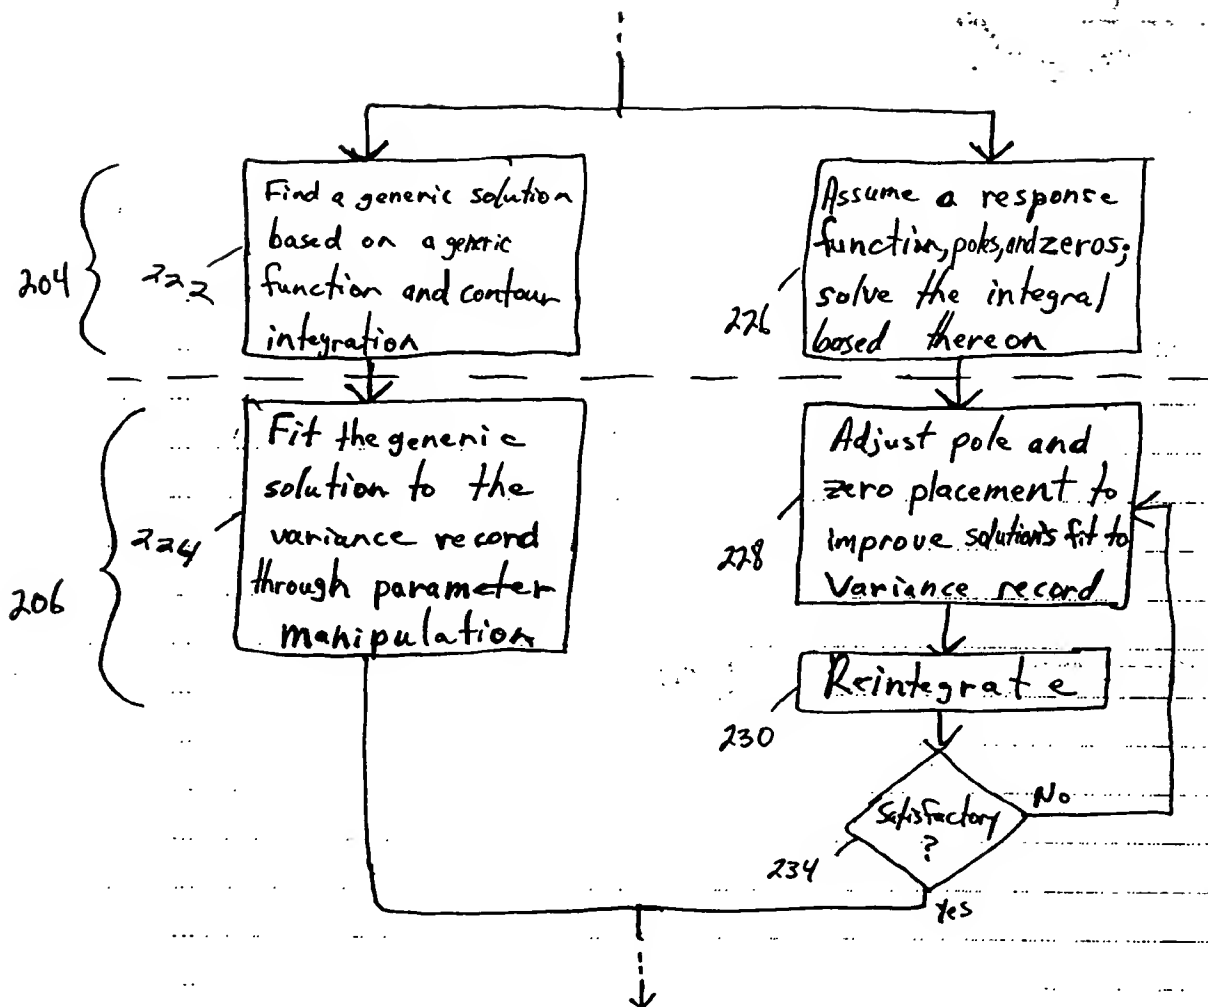 204
222
Find a generic solution
based on a generic
function and contour
integration
226
Assume a response
function, poles, and zeros;
solve the integral
based thereon
206
224
Fit the generic
solution to the
variance record
through parameter
manipulation
228
Adjust pole and
zero placement to
improve solution's fit to
variance record
230
Reintegrate
234
Satisfactory
?
No
Yes